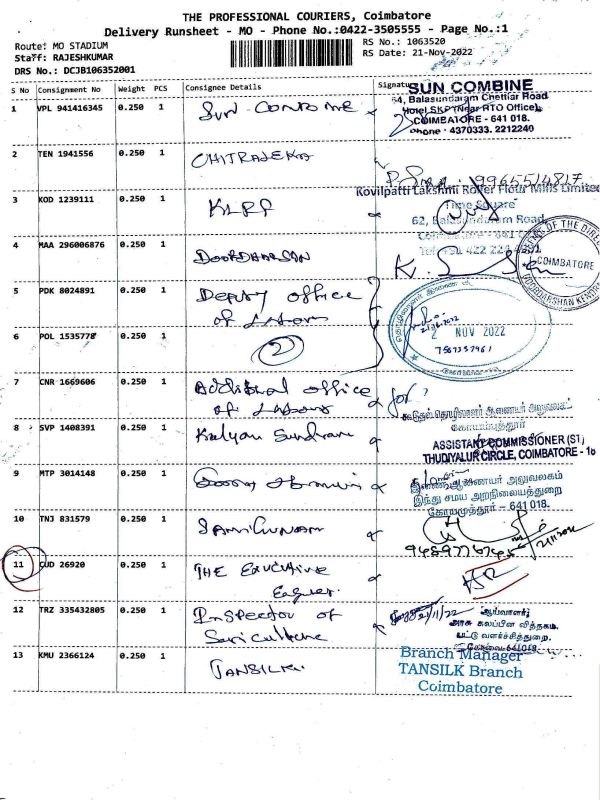 THE PROFESSIONAL COURIERS, Coimbatore
Delivery Runsheet - MO - Phone No.:0422-3505555 - Page No.:1
Route: MO STADIUM
RS No.: 1063520
Staff: RAJESHKUMAR
RS Date: 21-Nov-2022
DRS No.: DCJB106352001
S No Consignment No Weight PCS Consignee Details Signature
1 VPL 941416345 0.250 1 Sun Combine
SUN COMBINE
64, Balasundaram Chettiar Road
Hotel SKP (Near RTO Office),
COIMBATORE - 641 018.
Phone : 4370333, 2212240
2 TEN 1941556 0.250 1 CHITRALEKA
9965514817
3 KOD 1239111 0.250 1 KLRF
Kovilpatti Lakshmi Roller Flour Mills Limited
Time Square
62, Balasundaram Road,
4 MAA 296006876 0.250 1 DOORDHARSAN
COIMBATORE
5 PDK 8024891 0.250 1 Deputy office
of Labour
6 POL 1535778 0.250 1 2
2 NOV 2022
7 CNR 1669606 0.250 1 Additional office
of Labour
for
கூடுதல் தொழிலாளர் ஆணையர் அலுவலகம்
கோயம்புத்தூர்
8 SVP 1408391 0.250 1 Kalyan Sundram
ASSISTANT COMMISSIONER (ST)
THUDIYALUR CIRCLE, COIMBATORE - 18
9 MTP 3014148 0.250 1
இணை ஆணையர் அலுவலகம்
இந்து சமய அறநிலையத்துறை
கோயமுத்தூர் – 641 018.
10 TNJ 831579 0.250 1
11 CUD 26920 0.250 1 THE EXECUTIVE
Engineer.
12 TRZ 335432805 0.250 1 Inspector of
Sericulture
21/11/22
ஆய்வாளர்,
பட்டு வளர்ச்சித்துறை,
கோவை-641018.
13 KMU 2366124 0.250 1 TANSILK.
Branch Manager
TANSILK Branch
Coimbatore